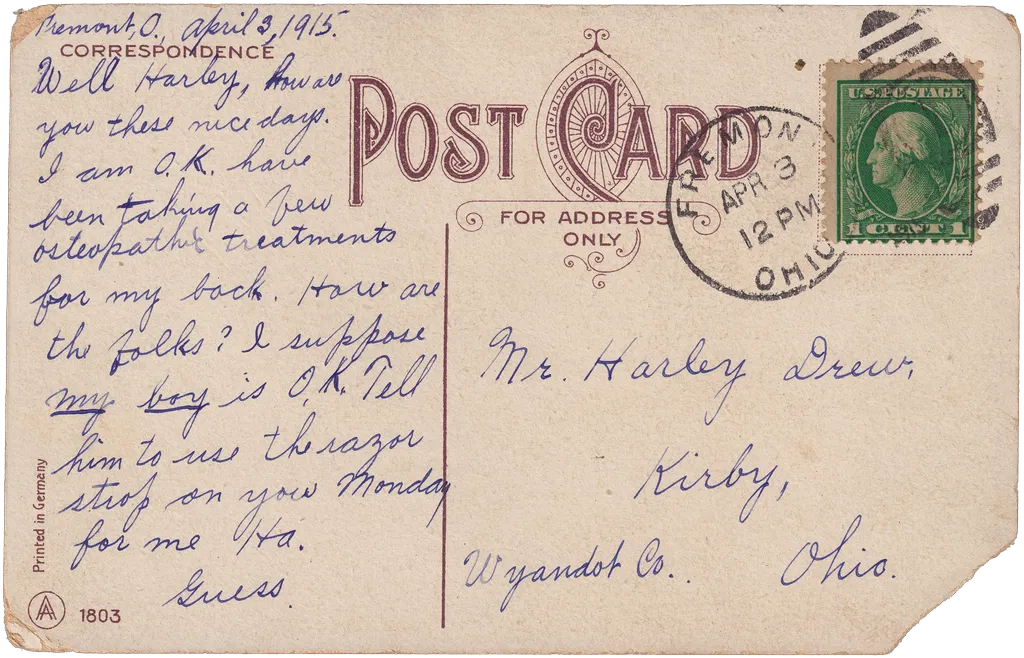 Fremont, O., April 3, 1915.
CORRESPONDENCE
Well Harley, How are
you these nice days.
I am O.K. have
been taking a few
osteopathic treatments
for my back. How are
the folks? I suppose
my boy is O.K. Tell
him to use the razor
strop on you Monday
for me Ha.
Guess.
Printed in Germany
AA 1803
POST CARD
FOR ADDRESS
ONLY
FREMONT
APR 3
12 PM
OHIO
U.S. POSTAGE
1 CENT 1
Mr. Harley Drew,
Kirby,
Wyandot Co.. Ohio.